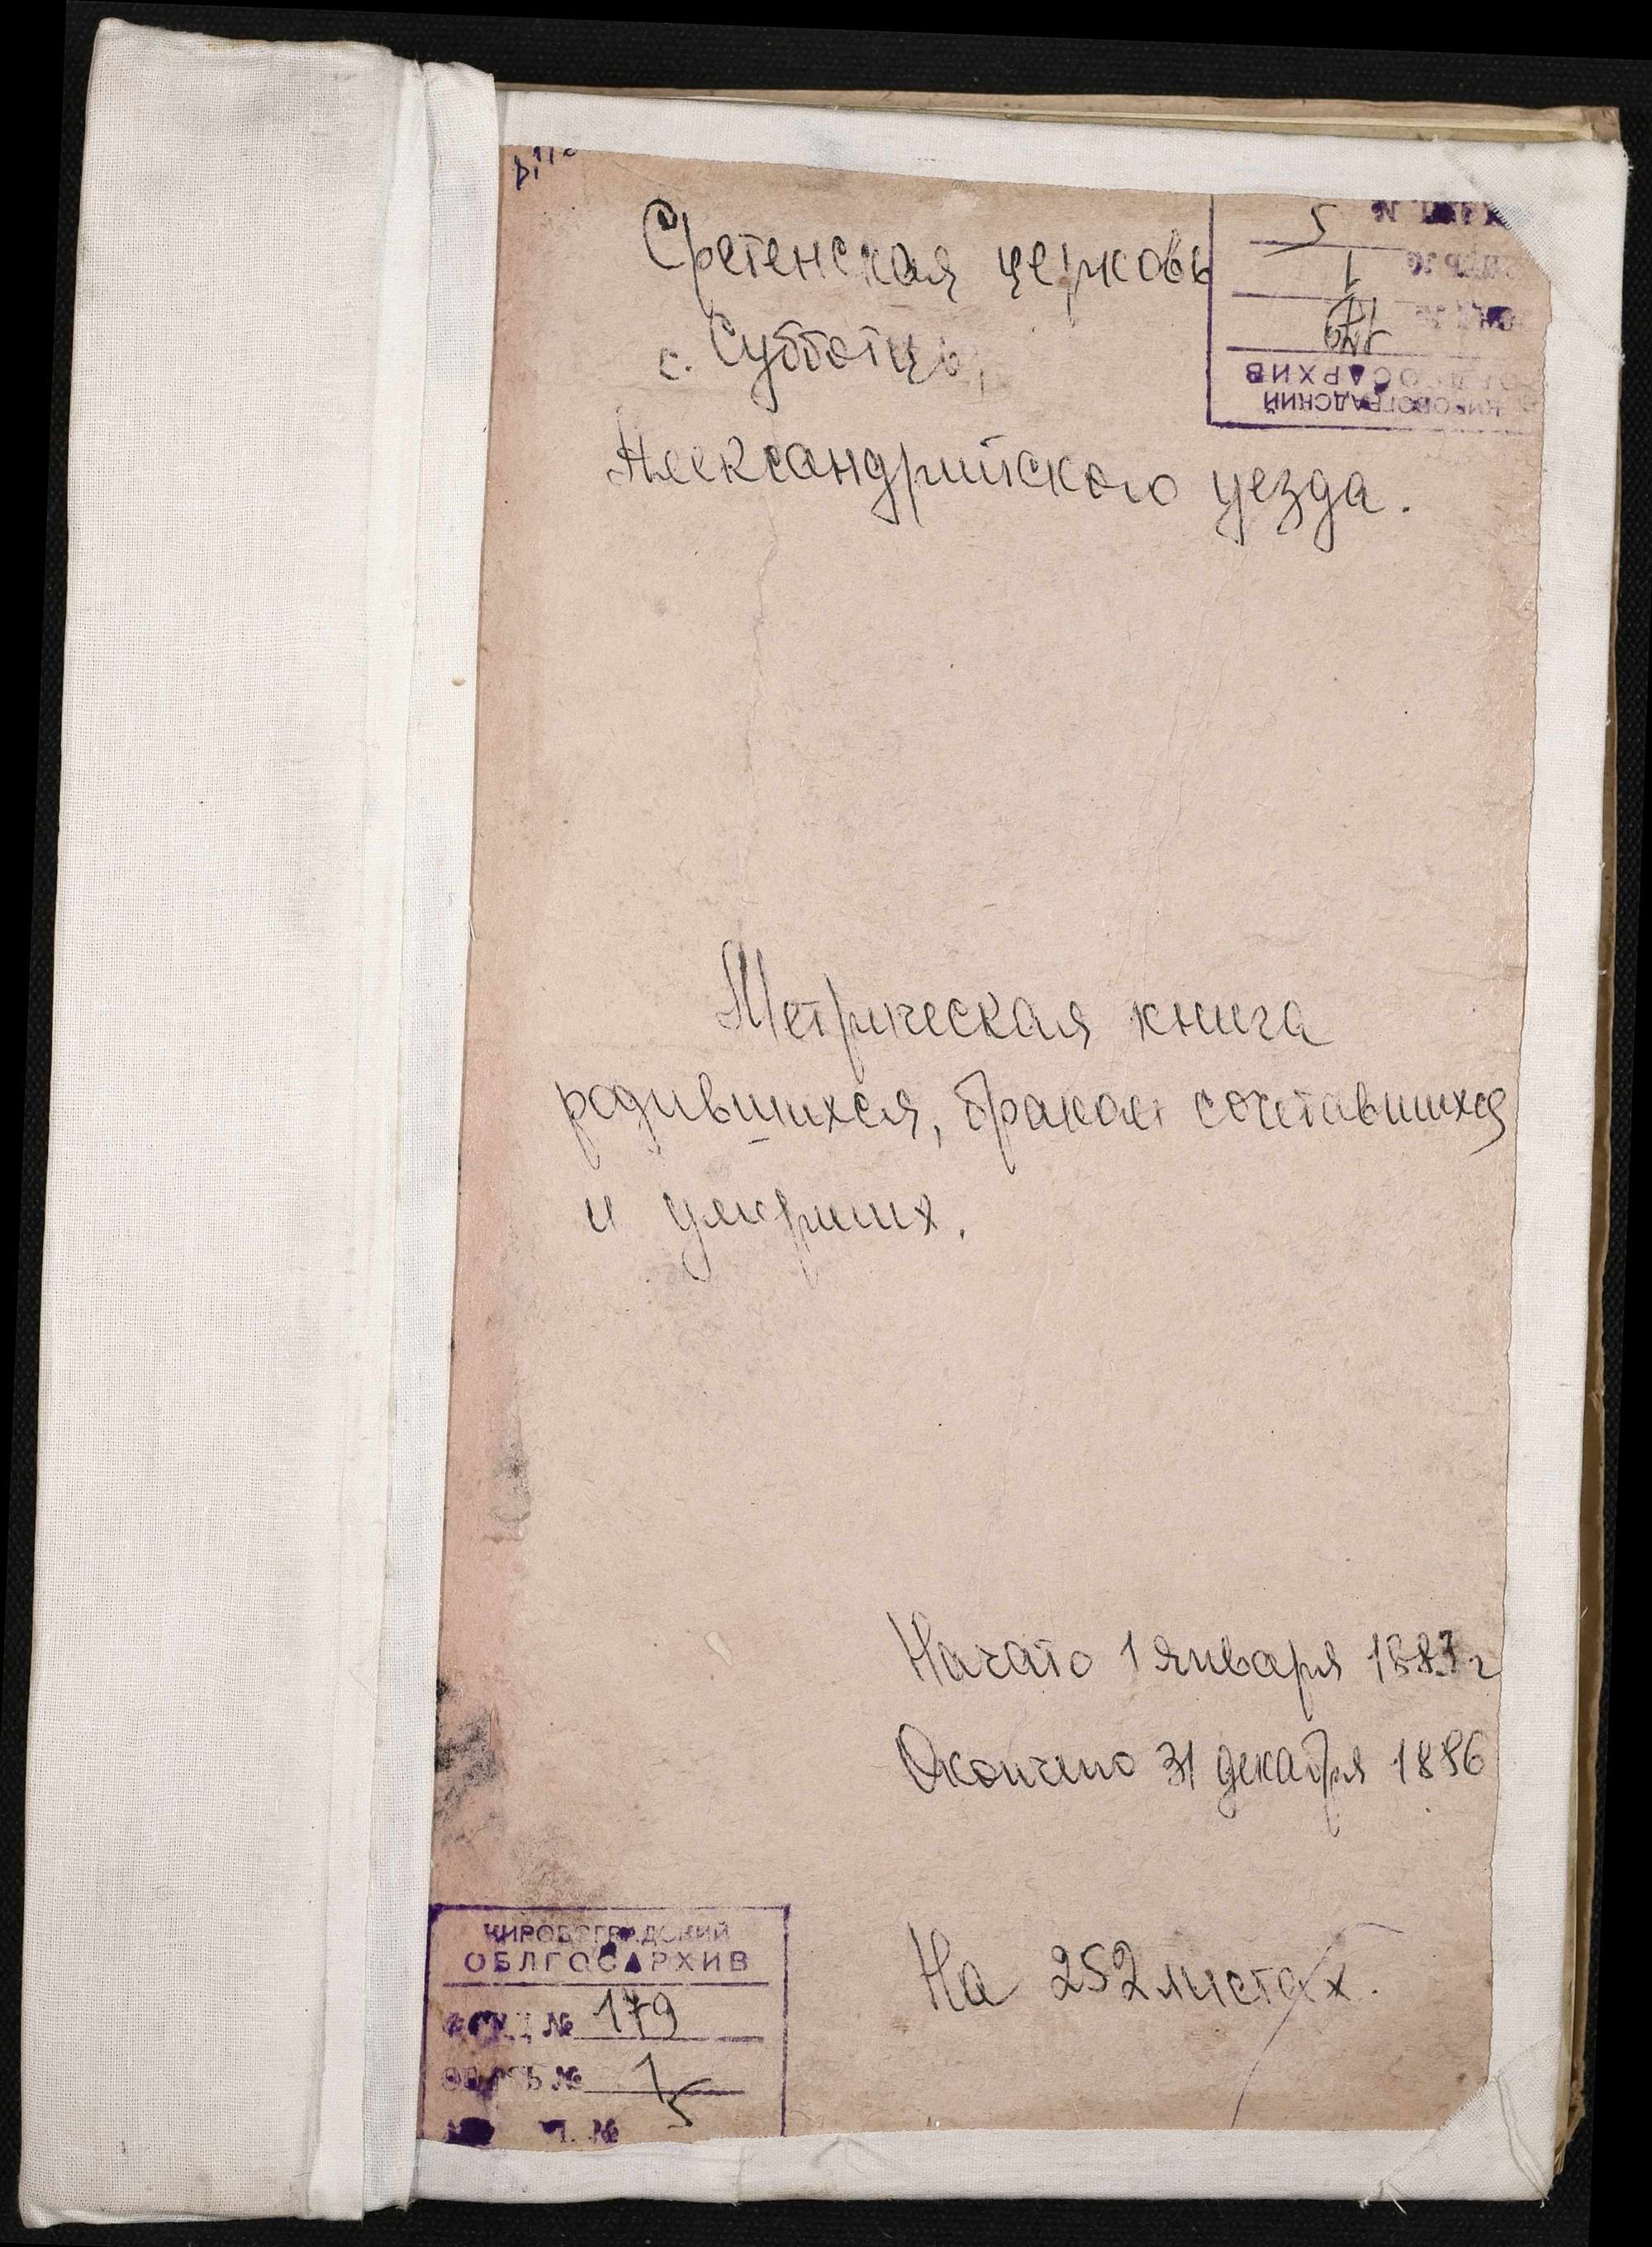 Сретенская церковь
с. Субботцы,
Александрийского уезда.
5
1
179
ОБЛГОСАРХИВ
КИРОВОГРАДСКИЙ
Метрическая книга
родившихся, браком сочетавшихся
и умерших.
Начато 1 января 1883 г
Окончено 31 декабря 1886
На 252 листах.
КИРОВОГРАДСКИЙ
ОБЛГОСАРХИВ
ФОНД № 179
ОПИСЬ № 1
№ 5